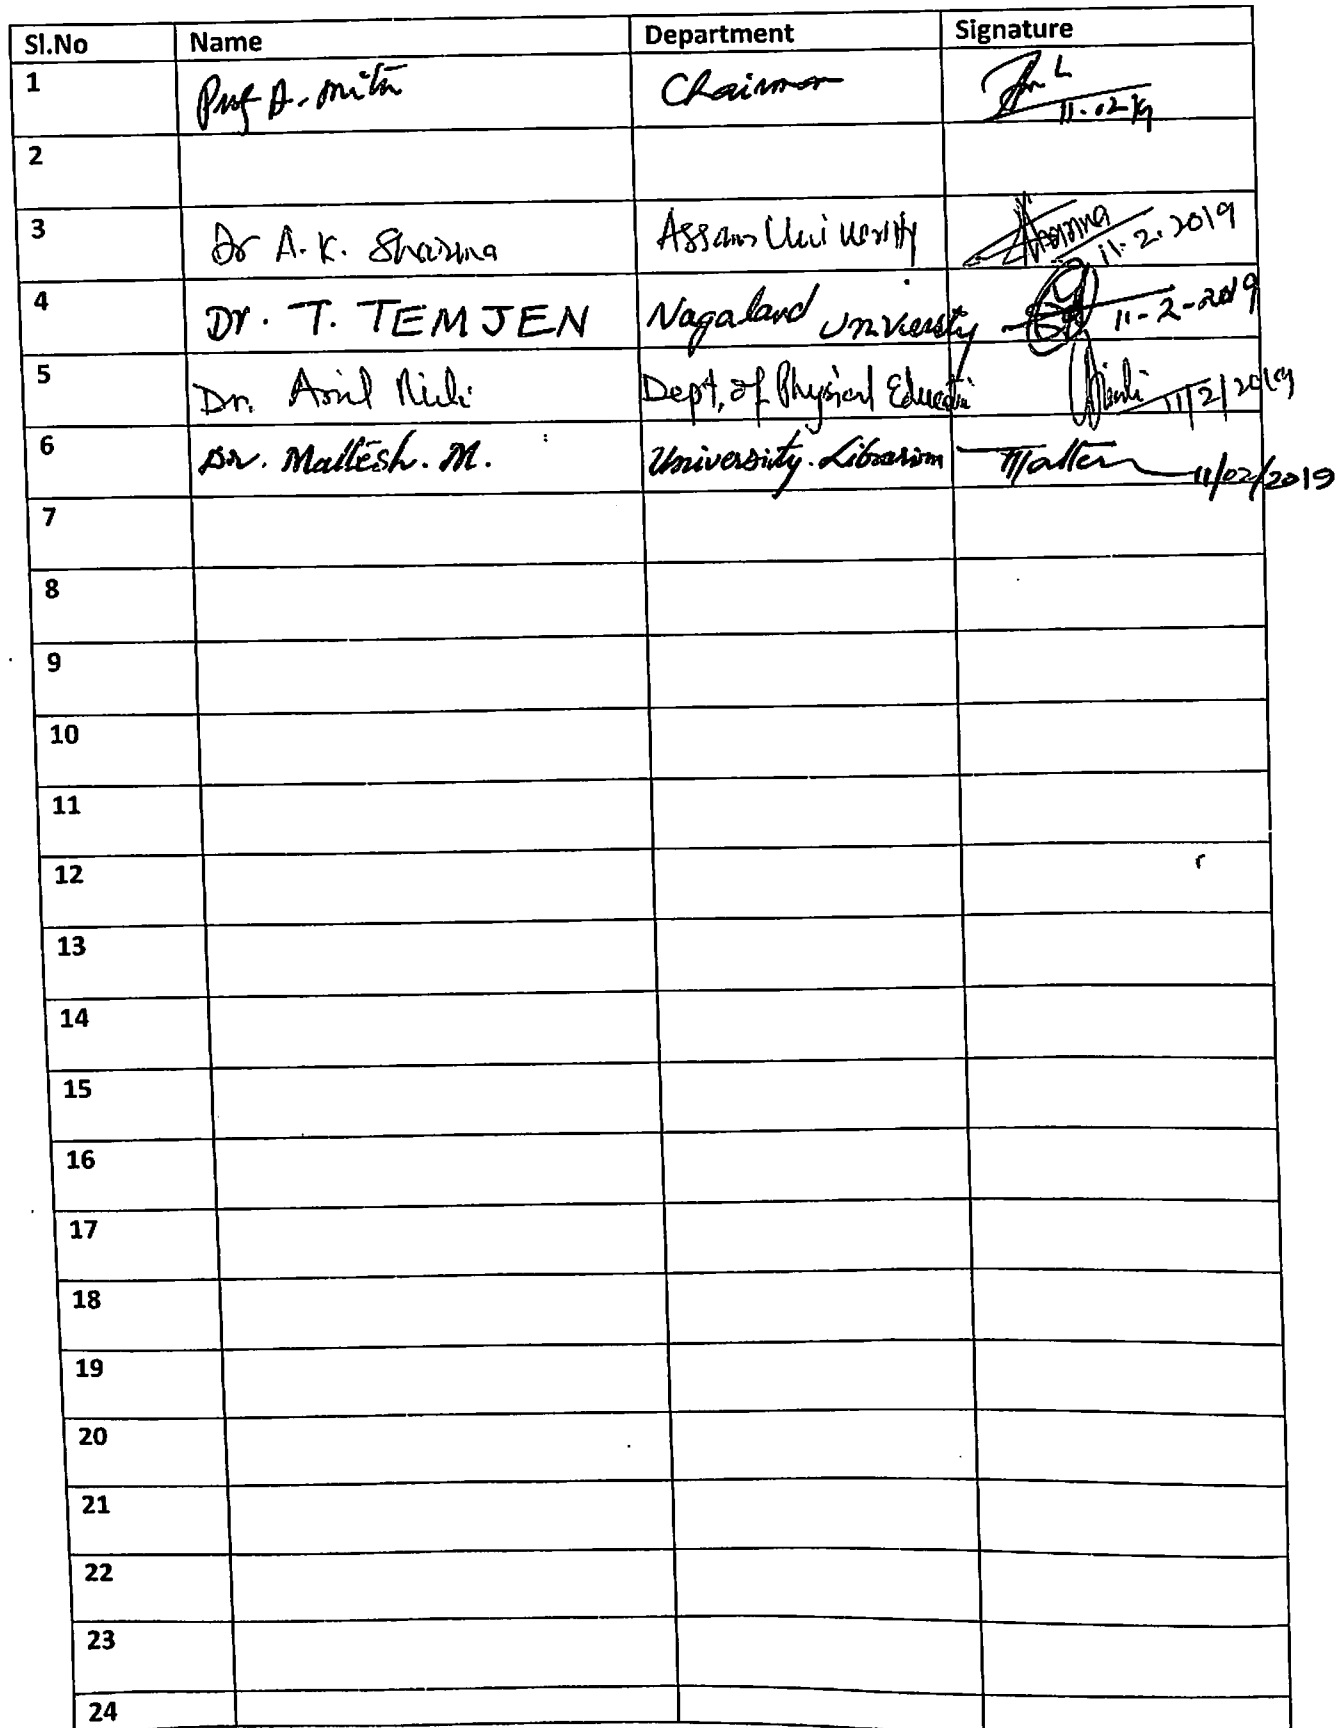 Sl.No Name Department Signature
1 Prof A. Mitra Chairman 11.02.19
2
3 Dr A.K. Sharma Assam University Sharma 11.2.2019
4 Dr. T. TEMJEN Nagaland University 11-2-2019
5 Dr. Anil Dept. of Physical Educati 11/2/2019
6 Dr. Mallesh. M. University. Librarian 11/02/2019
7
8
9
10
11
12
13
14
15
16
17
18
19
20
21
22
23
24